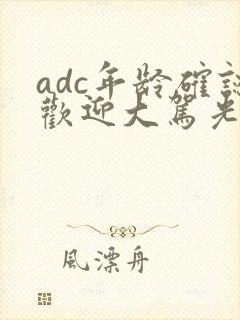 adc年龄確認
歡迎大駕光
風漂舟